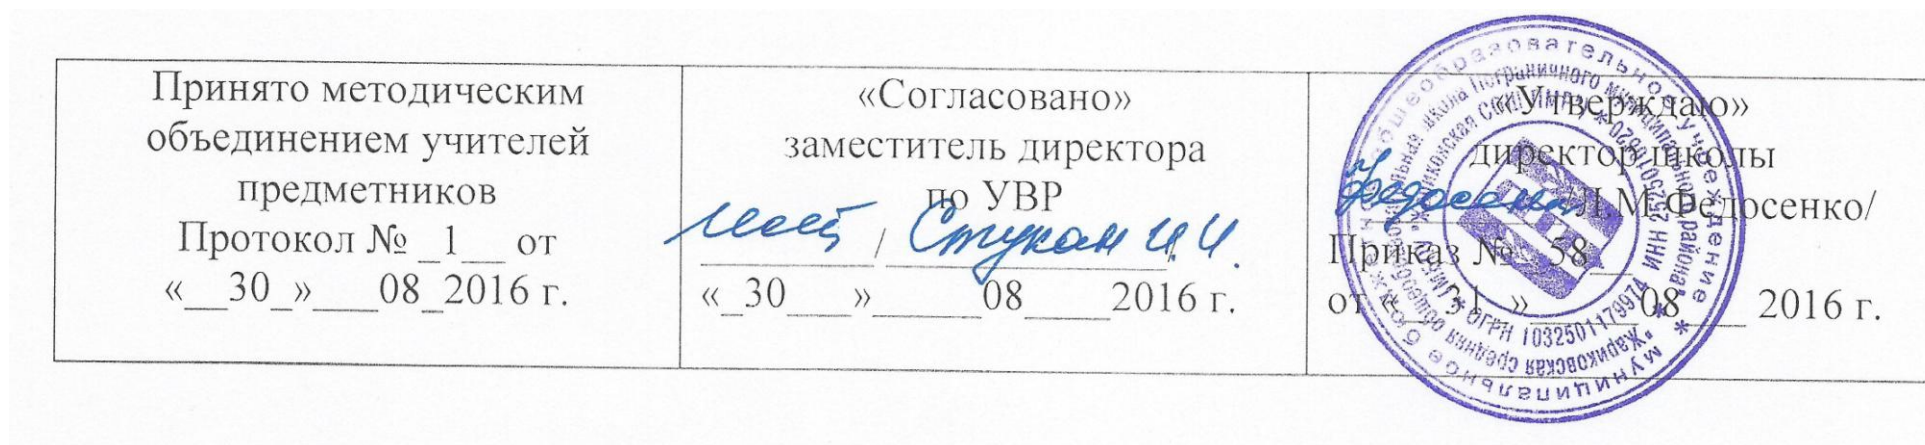 Принято методическим
объединением учителей
предметников
Протокол № _1__ от
«__30_»___08_2016 г.
«Согласовано»
заместитель директора
по УВР
/ Стукан И.И.
«_30___»_____08____2016 г.
«Утверждаю»
директор школы
/Л.М.Федосенко/
Приказ № _58__
от «__31__»_____08___ 2016 г.
муниципальное бюджетное общеобразовательное учреждение *
"Жариковская средняя общеобразовательная школа Пограничного муниципального района" *
ОГРН 1032501179974 ИНН 2525010820 *